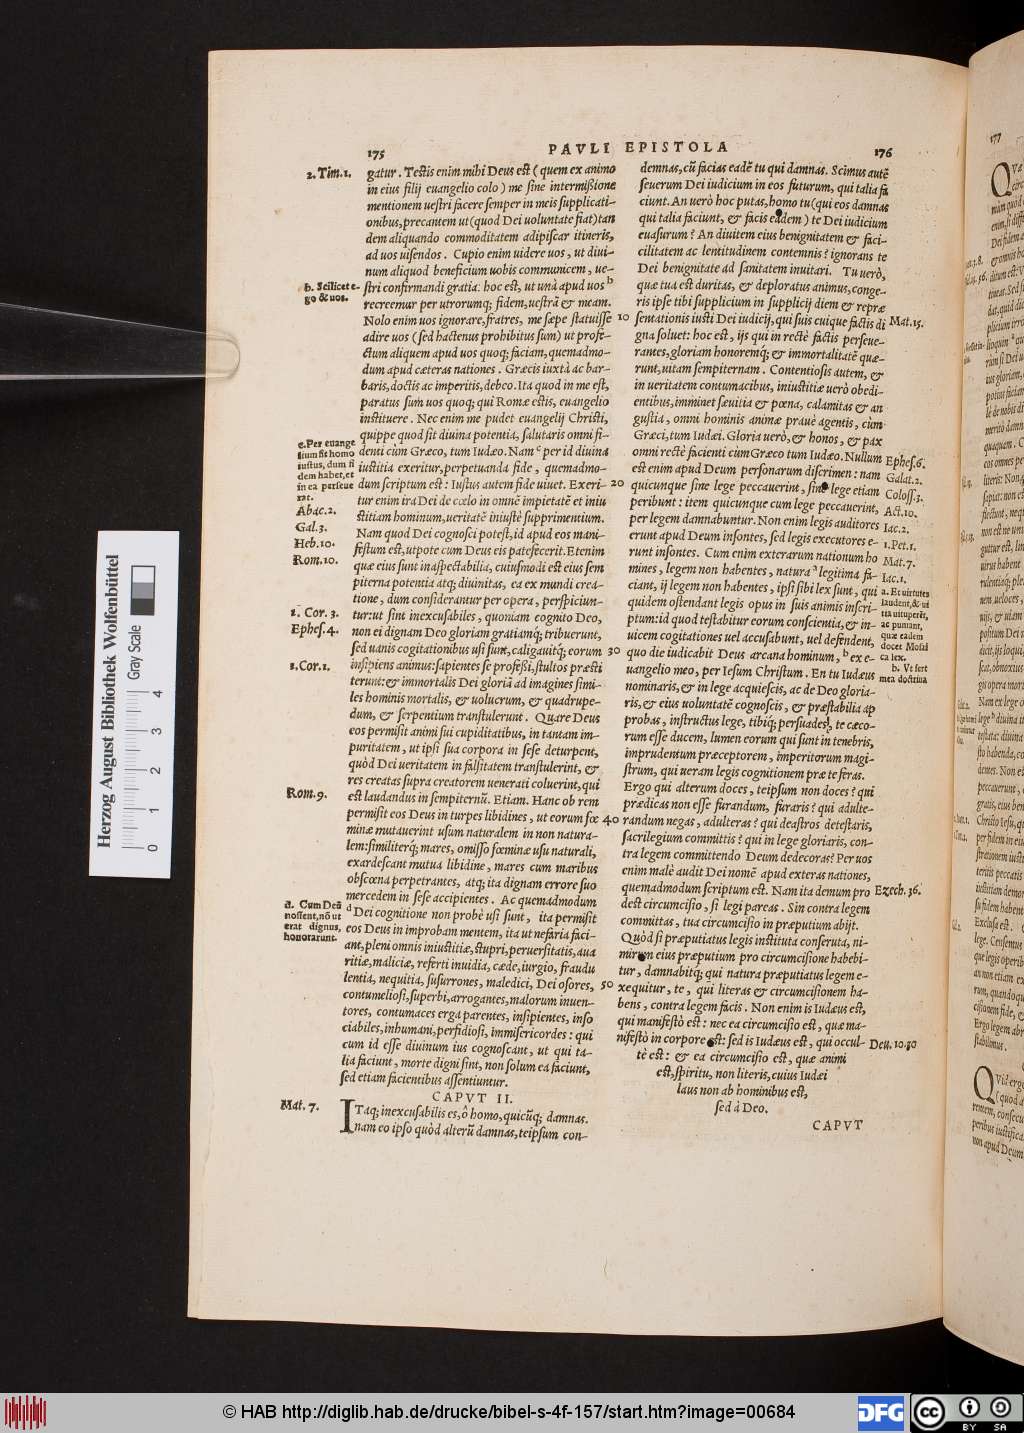 175 PAVLI EPISTOLA 176
2. Tim. 1.
b. Scilicet e-
go & uos.
e. Per euange
lium fit homo
iustus, dum fi
dem habet, et
in ea perseue
rat.
Abac. 2.
Gal. 3.
Heb. 10.
Rom. 10.
1. Cor. 3.
Ephes. 4.
1. Cor. 1.
Rom. 9.
d. Cum Deũ
nossent, nõ ut
erat dignus,
honorarunt.
Mat. 7.
gatur. Testis enim mihi Deus est (quem ex animo
in eius filij euangelio colo) me sine intermißione
mentionem uestri facere semper in meis supplicati-
onibus, precantem ut (quod Dei uoluntate fiat) tan
dem aliquando commoditatem adipiscar itineris,
ad uos uisendos. Cupio enim uidere uos, ut diui-
num aliquod beneficium uobis communicem, ue-
stri confirmandi gratia: hoc est, ut unà apud uos b
recreemur per utrorumq; fidem, uestrã & meam.
Nolo enim uos ignorare, fratres, me sæpe statuisse
adire uos (sed hactenus prohibitus sum) ut profe-
ctum aliquem apud uos quoq; faciam, quemadmo-
dum apud cæteras nationes. Græcis iuxtà ac bar-
baris, doctis ac imperitis, debeo. Ita quod in me est,
paratus sum uos quoq; qui Romæ estis, euangelio
instituere. Nec enim me pudet euangelij Christi,
quippe quod sit diuina potentia, salutaris omni fi-
denti cùm Græco, tum Iudæo. Nam e per id diuina
iustitia exeritur, perpetuanda fide, quemadmo-
dum scriptum est: Iustus autem fide uiuet. Exeri-
tur enim ira Dei de cœlo in omnẽ impietatẽ et iniu
stitiam hominum, ueritatẽ iniustè supprimentium.
Nam quod Dei cognosci potest, id apud eos mani-
festum est, utpote cum Deus eis patefecerit. Etenim
quæ eius sunt inaspectabilia, cuiusmodi est eius sem
piterna potentia atq; diuinitas, ea ex mundi crea-
tione, dum considerantur per opera, perspiciun-
tur: ut sint inexcusabiles, quoniam cognito Deo,
non ei dignam Deo gloriam gratiamq; tribuerunt,
sed uanis cogitationibus usi sunt, caligauitq; eorum
insipiens animus: sapientes se professi, stultos præsti
terunt: & immortalis Dei gloriã ad imagines simi-
les hominis mortalis, & uolucrum, & quadrupe-
dum, & serpentium transtulerunt. Quare Deus
eos permisit animi sui cupiditatibus, in tantam im-
puritatem, ut ipsi sua corpora in sese deturpent,
quòd Dei ueritatem in falsitatem transtulerint, &
res creatas supra creatorem uenerati coluerint, qui
est laudandus in sempiternũ. Etiam. Hanc ob rem
permisit eos Deus in turpes libidines, ut eorum fœ
minæ mutauerint usum naturalem in non natura-
lem: similiterq; mares, omisso fœminæ usu naturali,
exardescant mutua libidine, mares cum maribus
obscœna perpetrantes, atq; ita dignam errore suo
mercedem in sese accipientes. Ac quemadmodum
d Dei cognitione non probè usi sunt, ita permisit
eos Deus in improbam mentem, ita ut nefaria faci-
ant, pleni omnis iniustitiæ, stupri, peruersitatis, aua
ritiæ, maliciæ, referti inuidia, cæde, iurgio, fraudu
lentia, nequitia, susurrones, maledici, Dei osores,
contumeliosi, superbi, arrogantes, malorum inuen-
tores, contumaces erga parentes, insipientes, inso
ciabiles, inhumani, perfidiosi, immisericordes: qui
cum id esse diuinum ius cognoscant, ut qui ta-
lia faciunt, morte digni sint, non solum ea faciunt,
sed etiam facientibus assentiuntur.
CAPVT II.
ITaq; inexcusabilis es, ô homo, quicũq; damnas.
nam eo ipso quòd alterũ damnas, teipsum con-
10
20
30
40
50
demnas, cũ facias eadẽ tu qui damnas. Scimus autẽ
seuerum Dei iudicium in eos futurum, qui talia fa
ciunt. An uerò hoc putas, homo tu (qui eos damnas
qui talia faciunt, & facis eadem) te Dei iudicium
euasurum? An diuitem eius benignitatem & faci-
cilitatem ac lentitudinem contemnis? ignorans te
Dei benignitate ad sanitatem inuitari. Tu uerò,
quæ tua est duritas, & deploratus animus, conge-
ris ipse tibi supplicium in supplicij diem & repræ
sentationis iusti Dei iudicij, qui suis cuique factis di
gna soluet: hoc est, ijs qui in rectè factis perseue-
rantes, gloriam honoremq́; & immortalitatẽ quæ-
runt, uitam sempiternam. Contentiosis autem, &
in ueritatem contumacibus, iniustitiæ uerò obedi-
entibus, imminet sæuitia & pœna, calamitas & an
gustia, omni hominis animæ prauè agentis, cùm
Græci, tum Iudæi. Gloria uerò, & honos, & pax
omni rectè facienti cùm Græco tum Iudæo. Nullum
est enim apud Deum personarum discrimen: nam
quicunque sine lege peccauerint, sine lege etiam
peribunt: item quicunque cum lege peccauerint,
per legem damnabuntur. Non enim legis auditores
erunt apud Deum insontes, sed legis executores e-
runt insontes. Cum enim exterarum nationum ho
mines, legem non habentes, natura a legitima fa-
ciant, ij legem non habentes, ipsi sibi lex sunt, qui
quidem ostendant legis opus in suis animis inscri-
ptum: id quod testabitur eorum conscientia, & in-
uicem cogitationes uel accusabunt, uel defendent,
quo die iudicabit Deus arcana hominum, b ex e-
uangelio meo, per Iesum Christum. En tu Iudæus
nominaris, & in lege acquiescis, ac de Deo gloria-
ris, & eius uoluntatẽ cognoscis, & præstabilia ap
probas, instructus lege, tibiq; persuades, te cæco-
rum esse ducem, lumen eorum qui sunt in tenebris,
imprudentum præceptorem, imperitorum magi-
strum, qui ueram legis cognitionem præ te feras.
Ergo qui alterum doces, teipsum non doces? qui
prædicas non esse furandum, furaris? qui adulte-
randum negas, adulteras? qui deastros detestaris,
sacrilegium committis? qui in lege gloriaris, con-
tra legem committendo Deum dedecoras? Per uos
enim malè audit Dei nomẽ apud exteras nationes,
quemadmodum scriptum est. Nam ita demum pro
dest circumcisio, si legi pareas. Sin contra legem
committas, tua circumcisio in præputium abijt.
Quòd si præputiatus legis instituta conseruta, ni-
mirum eius præputium pro circumcisione habebi-
tur, damnabitq; qui natura præputiatus legem e-
xequitur, te, qui literas & circumcisionem ha-
bens, contra legem facis. Non enim is Iudæus est,
qui manifestò est: nec ea circumcisio est, quæ ma-
nifestò in corpore est: sed is Iudæus est, qui occul-
tè est: & ea circumcisio est, quæ animi
est, spiritu, non literis, cuius Iudæi
laus non ab hominibus est,
sed à Deo.
CAPVT
Mat. 15.
Ephes. 6.
Galat. 2.
Coloss. 3.
Act. 10.
Iac. 2.
1. Pet. 1.
Mat. 7.
Iac. 1.
a. Et uirtutes
laudent, & ui
tia uituperẽt,
ac puniant,
quæ eadem
docet Mosai
ca lex.
b. Vt fert
mea doctrina
Ezech. 36.
Deu. 10. 30
177
Herzog August Bibliothek Wolfenbüttel
Gray Scale
0 1 2 3 4
© HAB http://diglib.hab.de/drucke/bibel-s-4f-157/start.htm?image=00684
DFG
cc BY SA